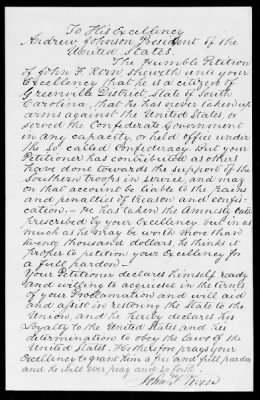 To His Excellency
Andrew Johnson President of the
United States.
The Humble Petition
of John F. Kern, sheweth unto your
Excellency that he is a citizen of
Greenville District, State of South
Carolina, that he has never taken up
arms against the United States, or
served the Confederate Government
in any capacity, or held office under
the so called Confederacy. But your
Petitioner has contributed as others
have done towards the support of the
Southern troops in service, and may
on that account be liable to the pains
and penalties of treason and confis-
cation - He has taken the Amnesty Oath
prescribed by your Excellency but in as
much as he may be worth more than
twenty thousand dollars, he thinks it
proper to petition your Excellency for
a full pardon -
Your Petitioner declares himself ready
and willing to acquiesce in the terms
of your Proclamation and will aid
and assist in restoring the State to the
Union, and he hereby declares his
Loyalty to the United States and his
determination to obey the laws of the
United States. He therefore prays your
Excellency to grant him a free and full pardon
and he will ever pray and so forth.
John F. Kern